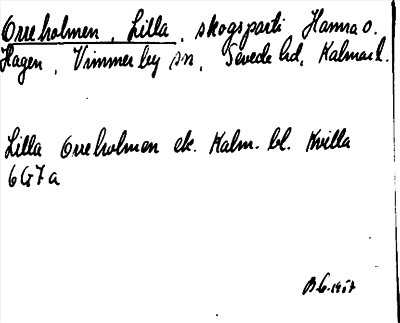 Orreholmen, Lilla, skogsparti Hamra o.
Hagen, Vimmerby sn, Sevede hd, Kalmar l.
Lilla Orreholmen ek. Kalm. bl. Kvilla
6G7a